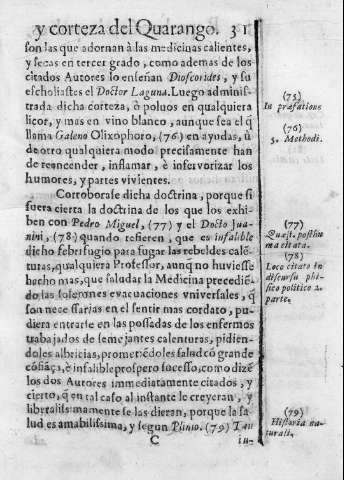 y corteza del Quarango. 31
son las que adornan à las medicinas calientes,
y secas en tercer grado, como ademas de los
citados Autores lo enseñan Dioscorides, y su
escholiastes el Doctor Laguna. Luego adminis-
trada dicha corteza, ò poluos en qualquiera
licor, y mas en vino blanco, aunque sea el q̃
llama Galeno Olixophoro, (76.) en ayudas, ù
de otro qualquiera modo precisamente han
de reancender, inflamar, è infervorizar los
humores, y partes vivientes.
Corroborase dicha doctrina, porque si
fuera cierta la doctrina de los que los exhi-
ben con Pedro Miguel, (77) y el Docto Jua-
nini, (78) quando refieren, que es infalible
dicho febrifugio para fugar las rebeldes calẽ-
turas, qualquiera Professor, aunq̃ no huviesse
hecho mas, que saludar la Medicina precediẽ-
do las solemnes evacuaciones vniversales, q̃
son necessarias en el sentir mas cordato, pu-
diera entrarse en las possadas de los enfermos
trabajados de semejantes calenturas, pidien-
doles albricias, prometiẽdoles salud cõ grande
cõfiãça, è infalible prospero sucesso, como dizẽ
los dos Autores immediatamente citados, y
cierto, q̃ en tal caso al instante le creyeran, y
liberalissimamente se las dieran, porque la sa-
lud es amabilissima, y segun Plinio. (79) Tan
C
in-
(75)
In præfatione
(76)
3. Methodi.
(77)
Quæst. posthu
ma citata.
(78)
Loco citato in
discursu phi-
sico politico 2.
parte.
(79)
Historia na-
turali.